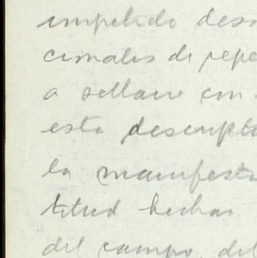 impelido des
cionales de repe
a sellarse con
esta descripti
la manifest
titud hechas
del campo, del